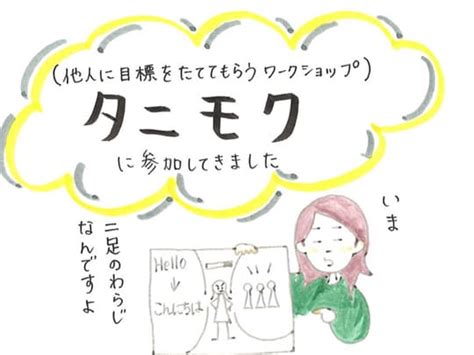 (他人に目標をたててもらうワークショップ)
タニモク
に参加してきました
いま
二足のわらじ
なんですよ
Hello
↓
こんにちは